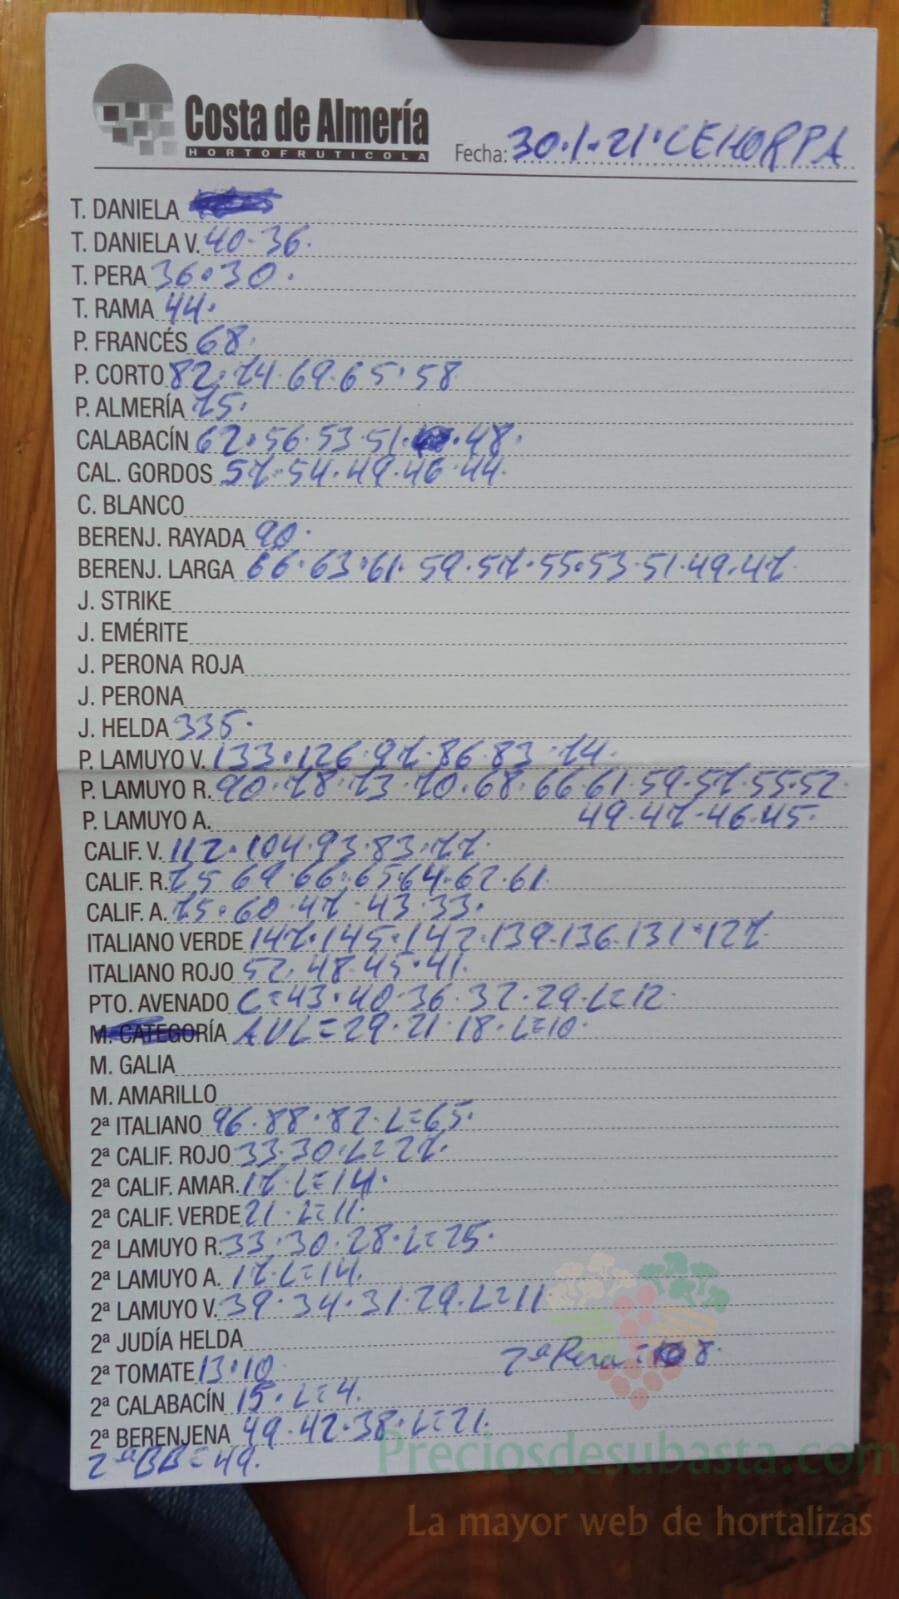 Costa de Almería
HORTOFRUTICOLA
Fecha: 30.1.21.CEHORPA
T. DANIELA
T. DANIELA V. 40.36.
T. PERA 36.30.
T. RAMA 44.
P. FRANCÉS 68.
P. CORTO 82.74.69.65.58
P. ALMERÍA 75.
CALABACÍN 62.56.53.51.48.
CAL. GORDOS 57.54.49.46.44.
C. BLANCO
BERENJ. RAYADA 90.
BERENJ. LARGA 66.63.61.59.57.55.53.51.49.47.
J. STRIKE
J. EMÉRITE
J. PERONA ROJA
J. PERONA
J. HELDA 335.
P. LAMUYO V. 133.126.97.86.83.74.
P. LAMUYO R. 90.78.73.70.68.66.61.59.57.55.52.
P. LAMUYO A. 49.47.46.45.
CALIF. V. 112.104.93.83.77.
CALIF. R. 75.69.66.65.64.62.61.
CALIF. A. 75.60.47.43.33.
ITALIANO VERDE 147.145.142.139.136.131.127.
ITALIANO ROJO 52.48.45.41.
PTO. AVENADO C=43.40.36.32.29.L=12.
M. CATEGORÍA AVL=29.21.18.L=10.
M. GALIA
M. AMARILLO
2ª ITALIANO 96.88.82.L=65.
2ª CALIF. ROJO 33.30.L=27.
2ª CALIF. AMAR. 17.L=14.
2ª CALIF. VERDE 21.L=11.
2ª LAMUYO R. 33.30.28.L=25.
2ª LAMUYO A. 17.L=14.
2ª LAMUYO V. 39.34.31.29.L=11
2ª JUDÍA HELDA
2ª Pera = 8.
2ª TOMATE 13.10
2ª CALABACÍN 15.L=4.
2ª BERENJENA 49.42.38.L=21.
2ª BB=49.
Preciosdesubasta.com
La mayor web de hortalizas